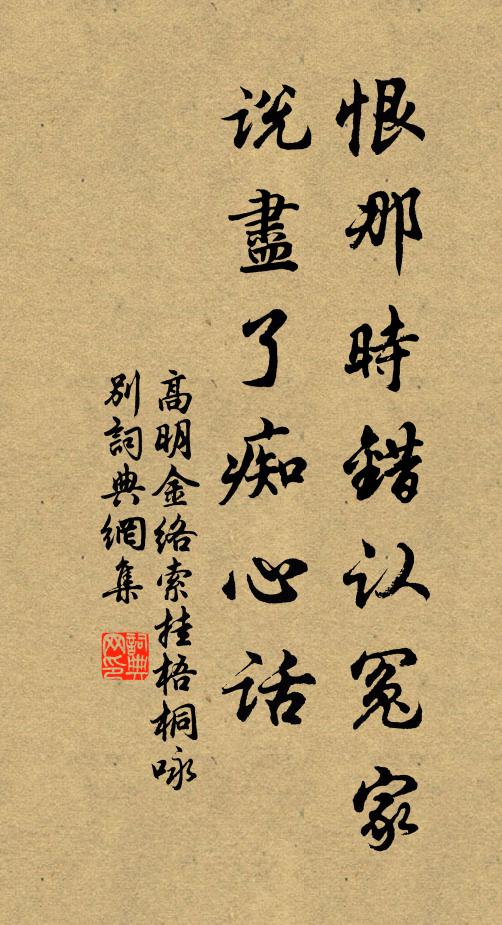 恨那時錯认冤家
說盡了痴心话
高明金络索挂梧桐咏
別詞典網集
詞典网印